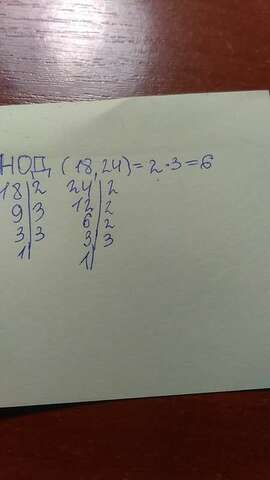 НОД (18,24)=2·3=6
18|2 24|2
9|3 12|2
3|3 6|2
1| 3|3
1|